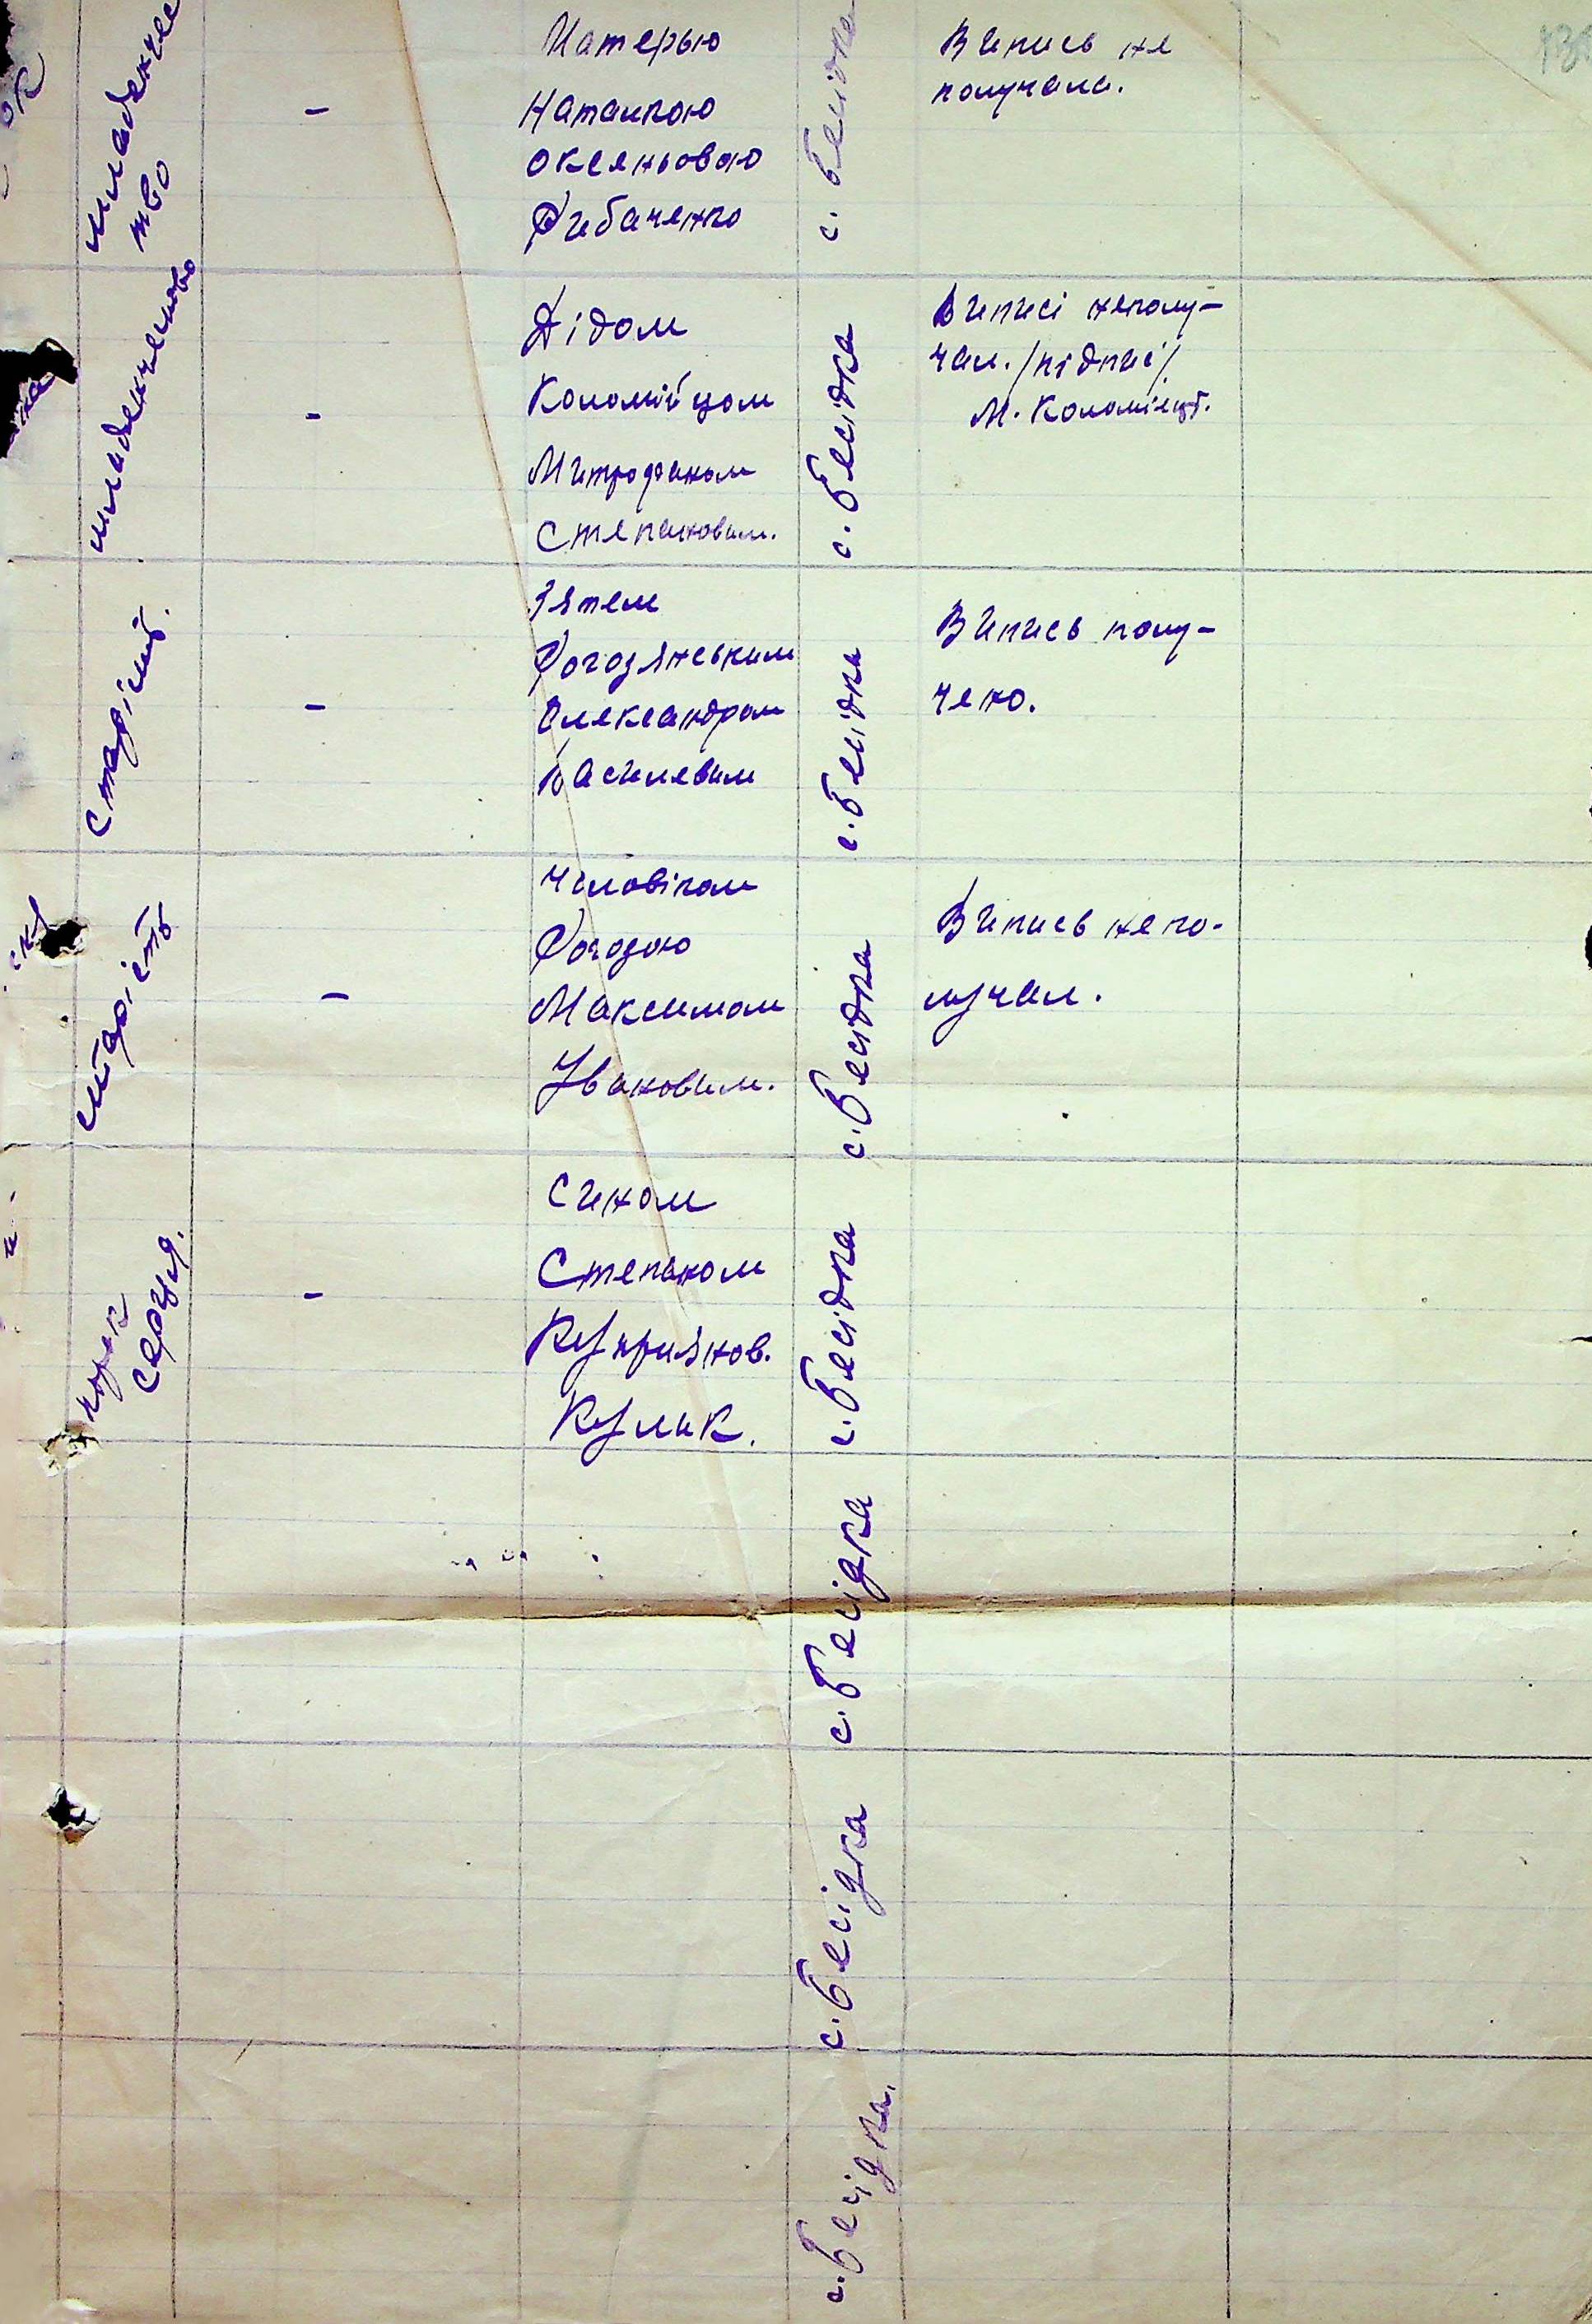 младенчес
тво
-
Матерью
Наталкою
Оксеньовою
Рибаченко
с. Бесідка
Випись не
получала.
младенчество
-
Дідом
Коломійцом
Митрофаном
Степановим.
с. Бесідка
Виписі неполу-
чал. /підписі/
М. Коломієць.
Старість.
-
Зятем
Рогозянським
Олександром
Василевим
с. Бесідка
Випись полу-
чено.
старість
-
Чоловіком
Рогозою
Максимом
Івановим.
с. Бесідка
Випись непо-
лучал.
порок
сердця.
-
Сином
Степаном
Купріянов.
Кулик.
с. Бесідка
с. Бесідка
с. Бесідка
с. Бесідка.